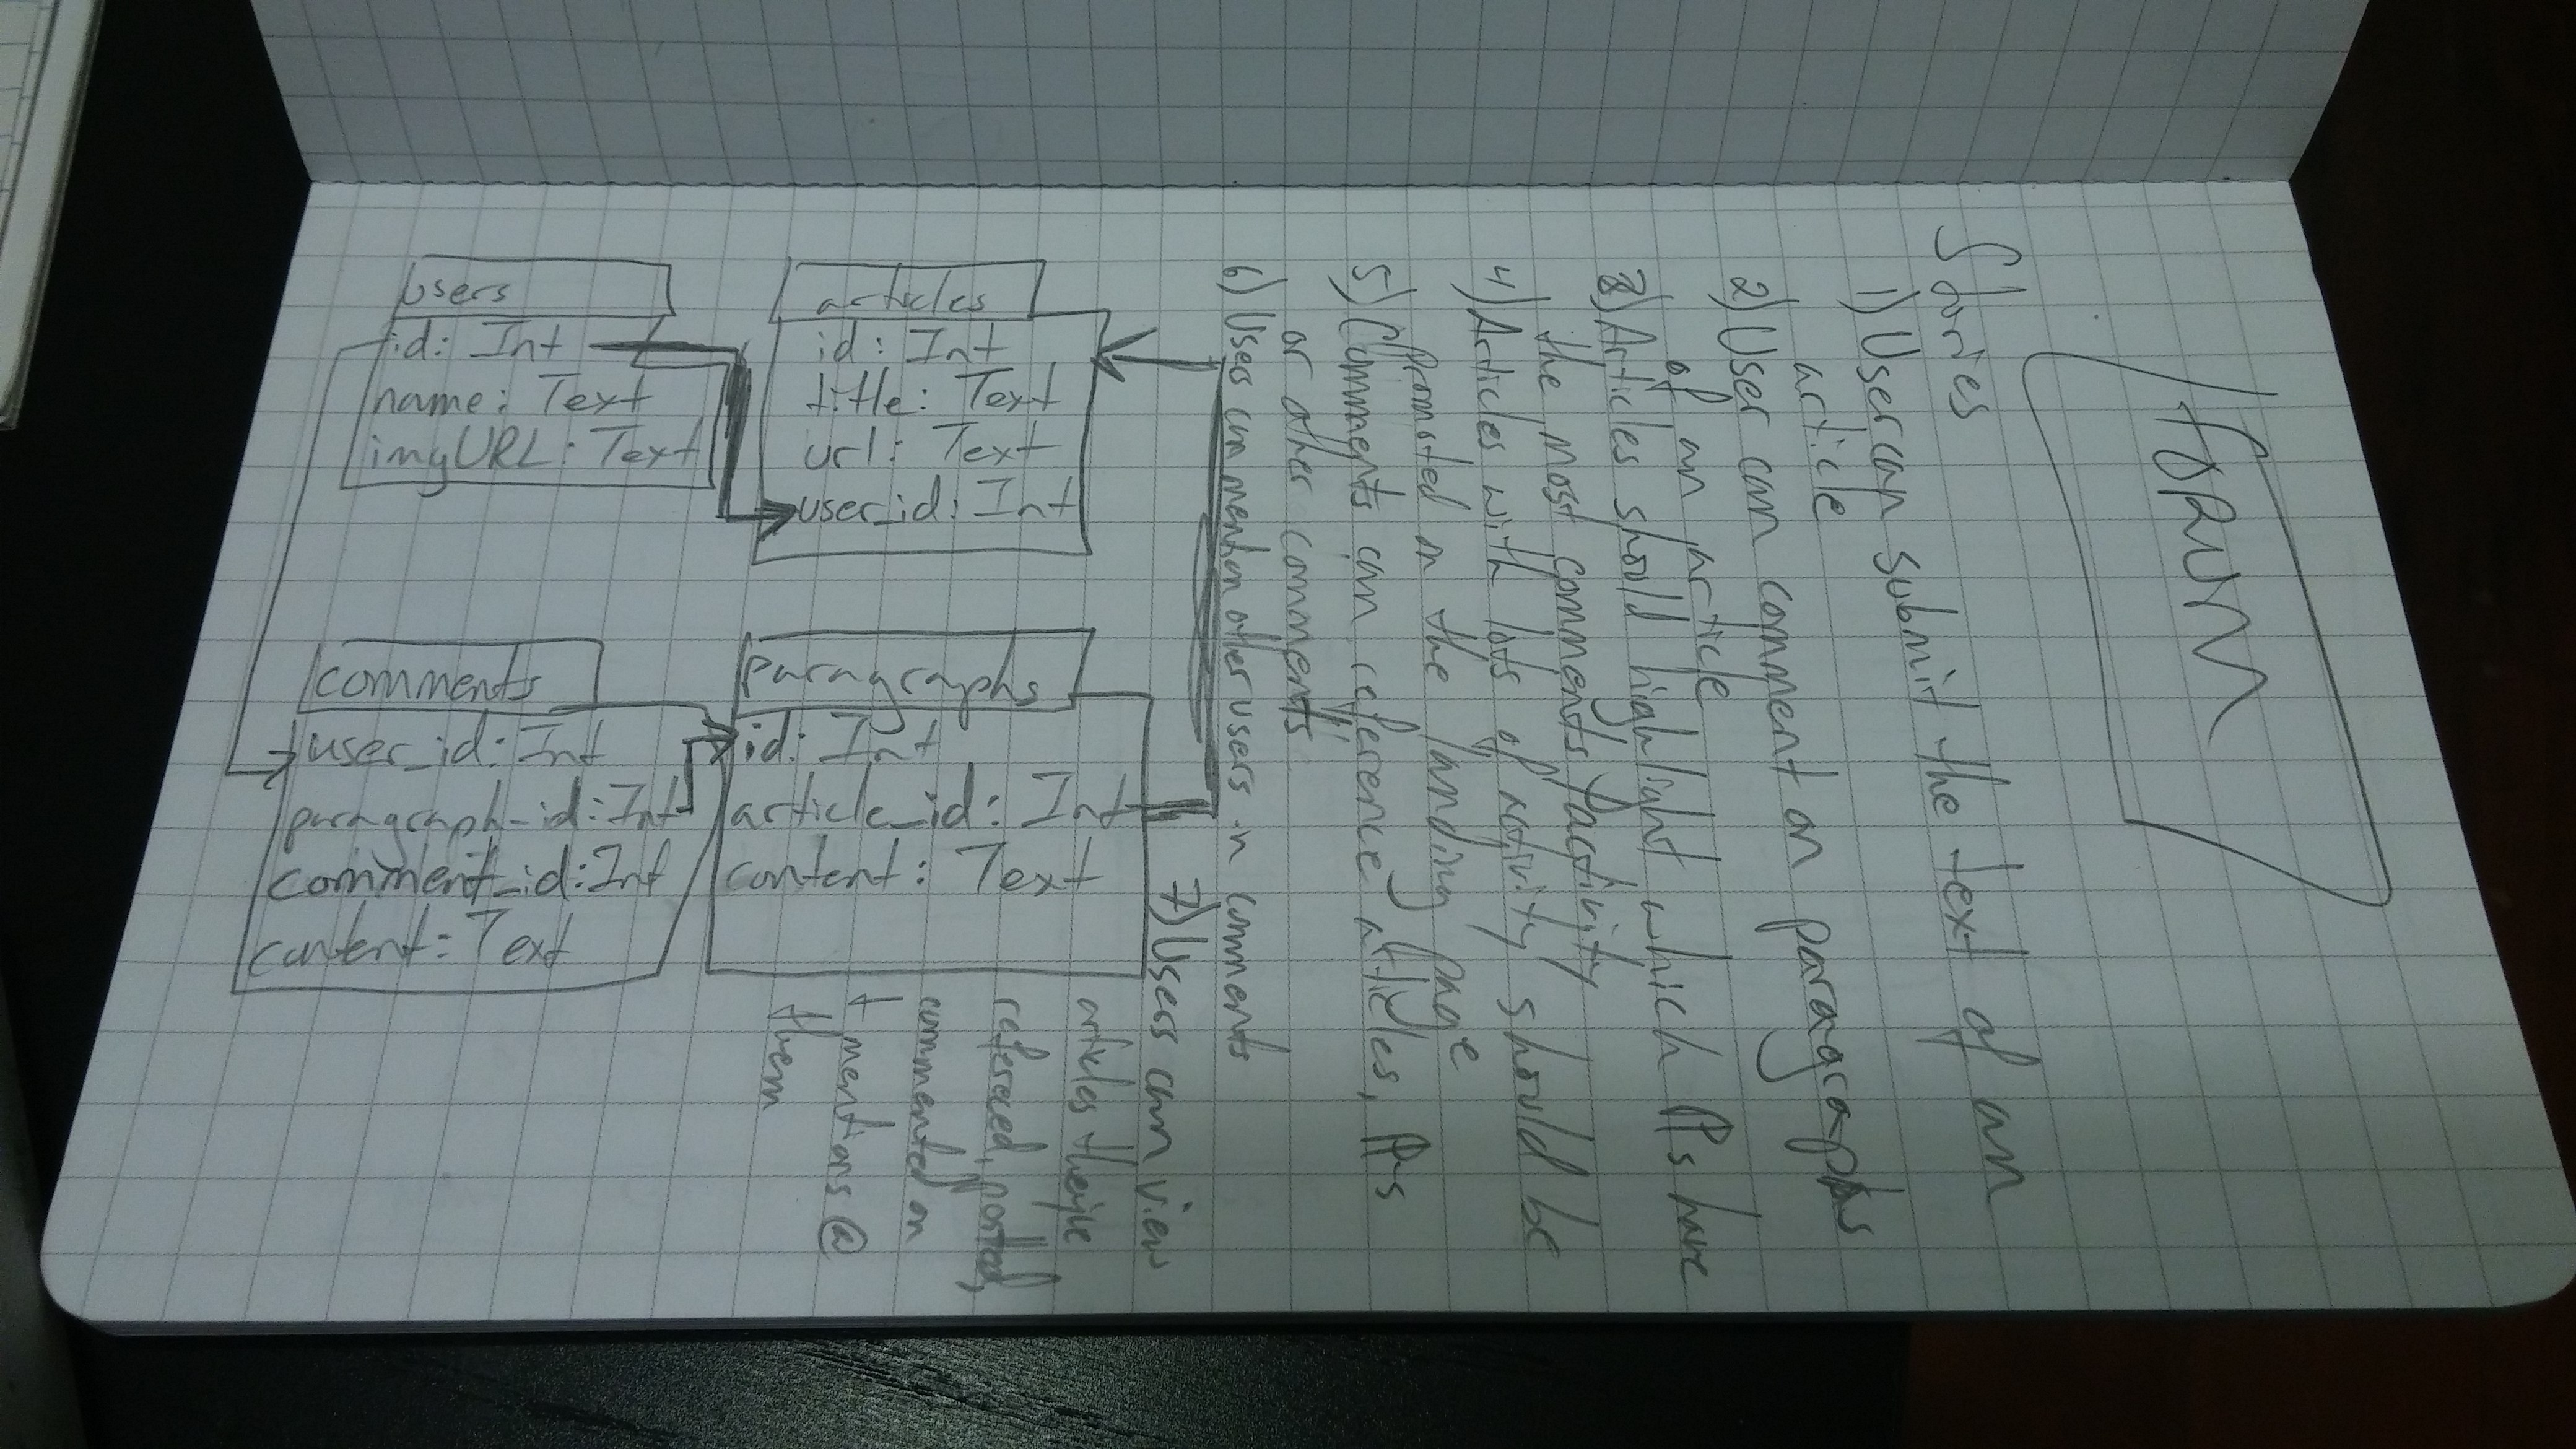 FORUM
Stories
1) User can submit the text of an
article
2) User can comment on paragraphs
of an article
3) Articles should highlight which PPs have
the most comments/activity
4) Articles with lots of activity should be
promoted on the landing page
5) Comments can reference articles, PPs
or other comments
6) Users can mention other users in comments
7) Users can view
articles they've
referenced, posted,
commented on
+ mentions @
them
users
id: Int
name: Text
imgURL: Text
articles
id: Int
title: Text
url: Text
user_id: Int
comments
user_id: Int
paragraph_id: Int
comment_id: Int
content: Text
paragraphs
id: Int
article_id: Int
content: Text